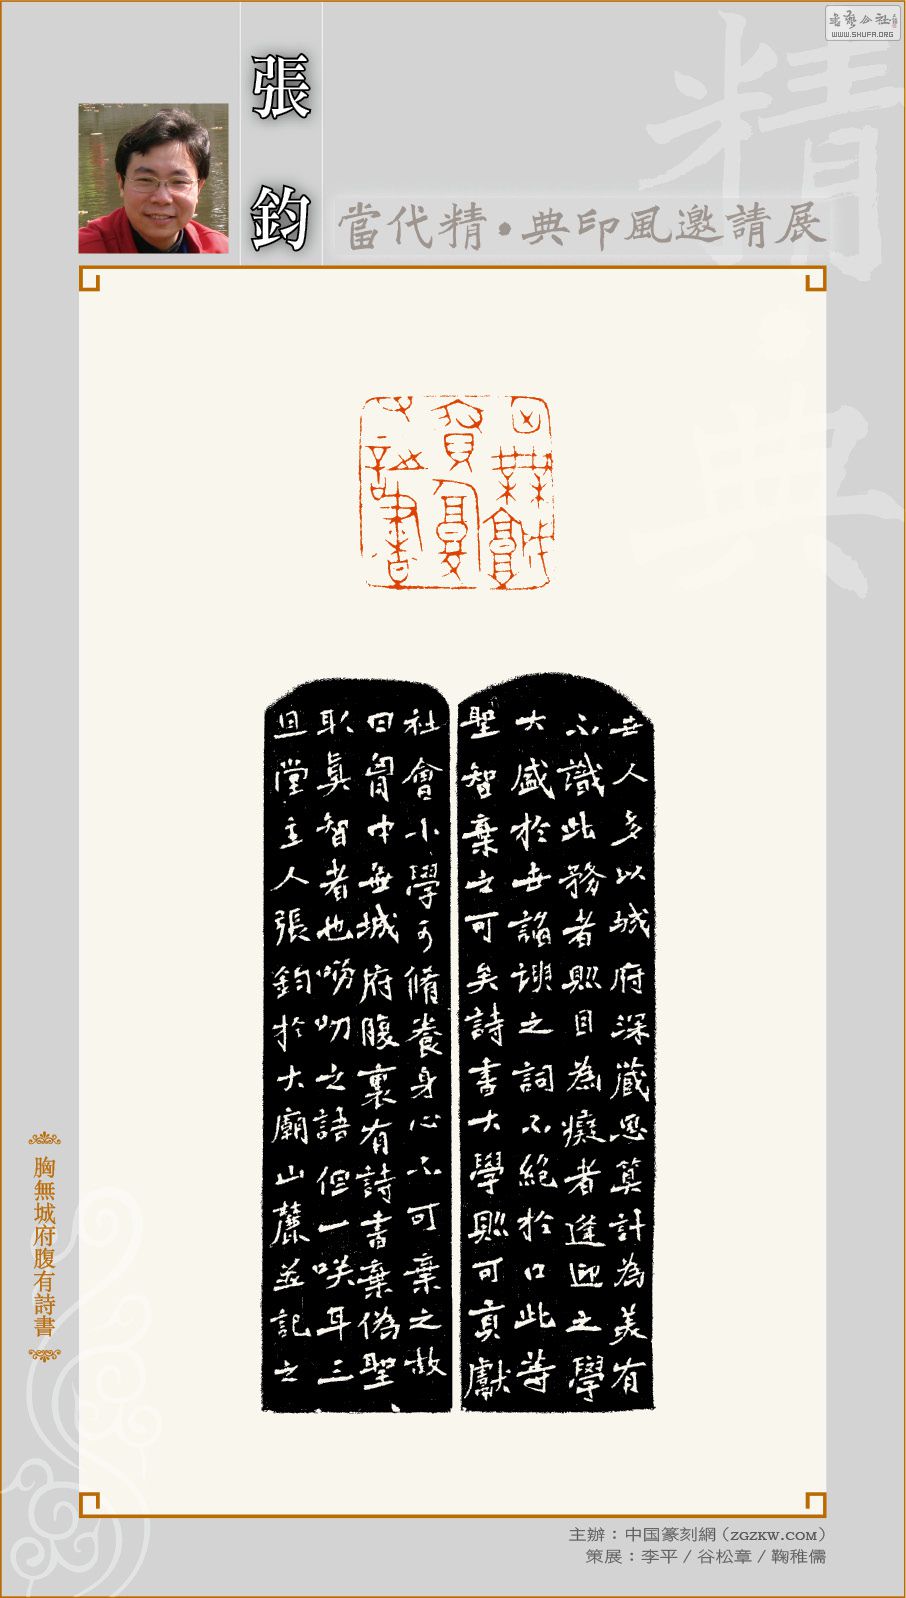 書藝公社
WWW.SHUFA.ORG
精
典
張鈞
當代精·典印風邀請展
胸無城府腹有詩書
世人多以城府深藏思算計為美有
不識此務者則目為癡者逢迎之學
大盛於世諂諛之詞不絕於口此等
聖智棄之可矣詩書大學則可貢獻
社會小學可脩養身心不可棄之故
曰胷中無城府腹裏有詩書棄偽聖
取真智者也嘮叨之語但一咲耳三
且堂主人張鈞於大廟山麓並記之
主辦：中国篆刻網（ZGZKW.COM）
策展：李平／谷松章／鞠稚儒